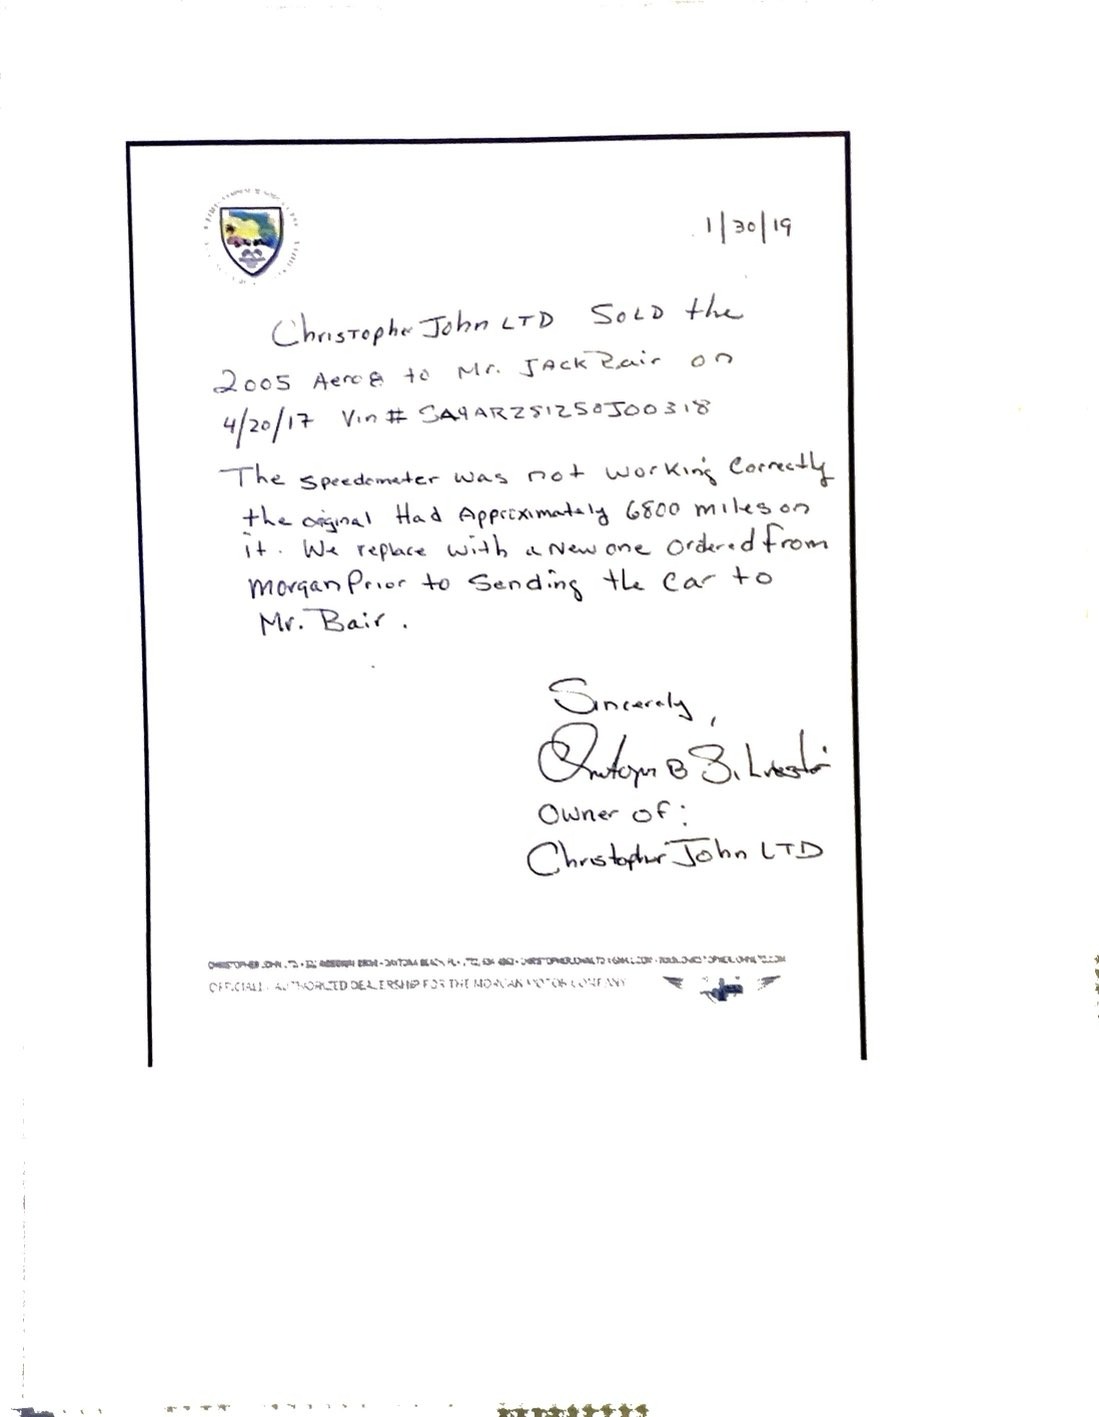 1/30/19
Christopher John LTD SOLD the
2005 Aero 8 to Mr. JACK Bair on
4/20/17 Vin # SA9AR251250J00318
The speedometer was not working correctly
the original Had Approximately 6800 miles on
it. We replace with a New one ordered from
Morgan Prior to Sending the car to
Mr. Bair.
Sincerely,
Owner of:
Christopher John LTD
CHRISTOPHER JOHN LTD DAYTONA BEACH, FL
OFFICIALLY AUTHORIZED DEALERSHIP FOR THE MORGAN MOTOR COMPANY